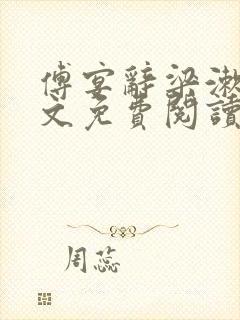 傅宴辭梁漱
文免費閱讀
周蕊